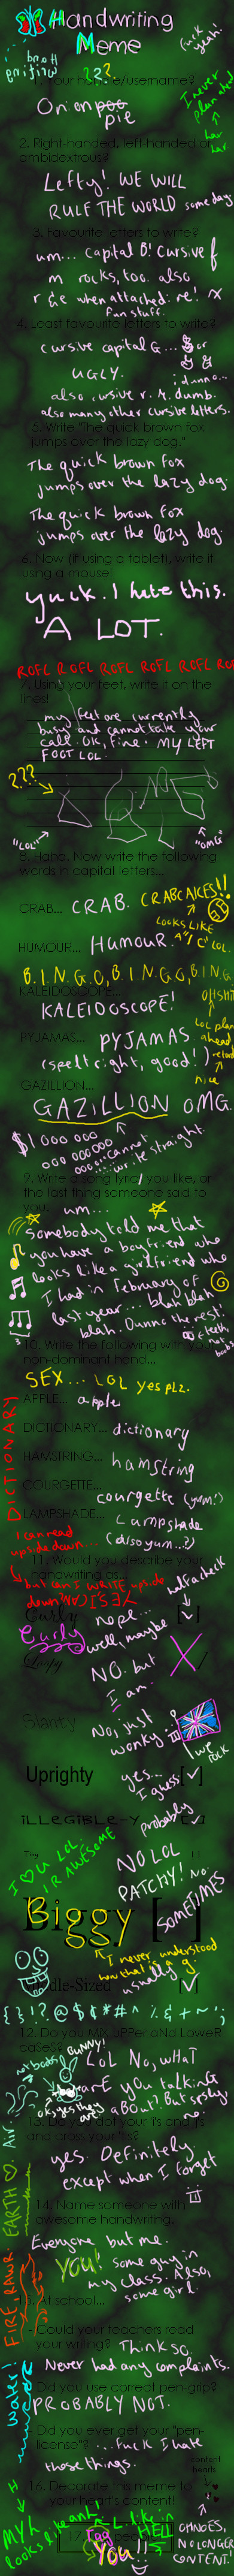 Handwriting
Meme
fuck yeah!
1. Your handle/username?
???
Orionpoo
pie
I never
plan ahead
har
har
2. Right-handed, left-handed or
ambidextrous?
Lefty! WE WILL
RULE THE WORLD some day
3. Favourite letters to write?
um... capital B! Cursive f
m rocks, too. also
r & e when attached: re!
fun stuff.
4. Least favourite letters to write?
cursive capital G...
or
UGLY.
i dunno...
also cursive r. it dumb.
also many other cursive letters.
5. Write "The quick brown fox
jumps over the lazy dog."
The quick brown fox
jumps over the lazy dog.
The quick brown fox
jumps over the lazy dog.
6. Now (if using a tablet), write it
using a mouse!
yuck. I hate this.
A LOT.
ROFL ROFL ROFL ROFL ROFL ROF
7. Using your feet, write it on the
lines!
my feet are currently
busy and cannot take your
call. OK, fine. MY LEFT
FOOT LOL.
???
LOL OMG
"LOL"
"OMG"
8. Haha. Now write the following
words in capital letters...
CRAB... CRAB. CRABCAKES!!
LOOKS LIKE
A "C" LOL.
HUMOUR... HUMOUR.
B.I.N.G.O, B.I.N.G.O, B.I.N.G
KALEIDOSCOPE... OHSHIT
KALEIDOSCOPE!
LOL plan
ahead
PYJAMAS... PYJAMAS
(spelt right, good!)
nice
GAZILLION...
GAZILLION OMG.
$1 000 000
000 000 000
000...i cannot
write straight.
9. Write a song lyric you like, or
the last thing someone said to
you.
um...
somebody told me that
you have a boyfriend who
looks like a girlfriend who
I had in February of
last year... blah blah
blah. Dunno the rest!
10. Write the following with your
non-dominant hand...
SEX... LOL yes plz.
APPLE... apple
DICTIONARY... dictionary
DICTIONARY
HAMSTRING... hamstring
COURGETTE... courgette (yumm!)
LAMPSHADE... Lampshade
(also yum...?)
I can read
upside down...
but can I WRITE upside
down?
11. Would you describe your
handwriting as...
half a check
Curly nope... [ ]
Curly well, maybe
Loopy NO. but
I am.
Slanty No, just
wonky...!
I UK
rock
Uprighty yes... [✓]
I guess
illegible-y probably
I ♡ U LOL.
UR AWESOME
Tiny NO LOL [ ]
PATCHY! No.
Biggy [ ]
SOMETIMES
I never understood
how that is a g.
Middle-Sized usually [✓]
{ } ! ? @ $ $ * # ^ % & + ~ : ;
12. Do you MiX uPPer aNd LoweR
caSeS?
BUNNY!
not boobs!
ok yes they are
LoL No, wHaT
arE you tAlkinG
aBOut? But srsly
13. Do you dot your 'i's and 'j's
and cross your 't's?
yes. Definitely.
except when I forget
14. Name someone with
awesome handwriting.
Everyone but me.
YOU! some guy in
my class. Also,
some girl.
AIR.
EARTH ♡.
FIRE. RAWR.
water!
15. At school...
- Could your teachers read
your writing? Think so.
Never had any complaints.
- Did you use correct pen-grip?
PROBABLY NOT.
- Did you ever get your "pen-
license"? ...Fuck I hate
those things.
content
hearts
16. Decorate this meme to
your heart's content!
OH NOES,
NO LONGER
CONTENT!
H
MY H
looks like an A
17. Tag people!
YOU!!